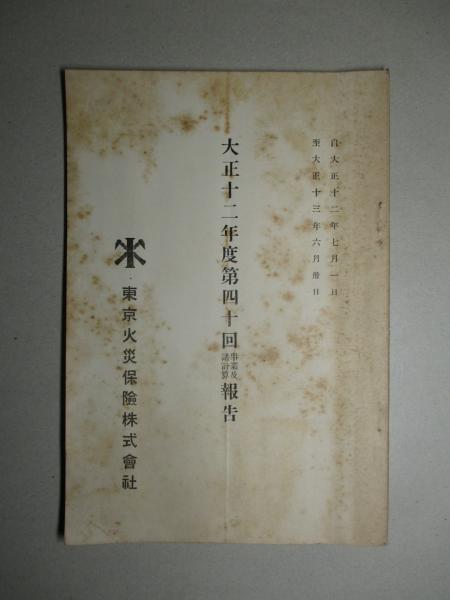 自大正十二年七月一日
至大正十三年六月卅日
大正十二年度第四十回事業及諸計算報告
東京火災保險株式會社